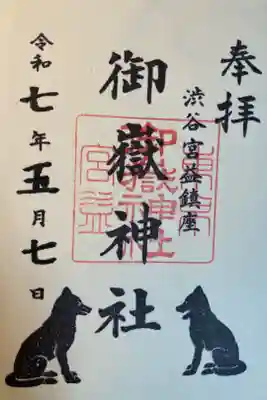 奉拝
渋谷宮益鎮座
御嶽神社
令和七年五月七日